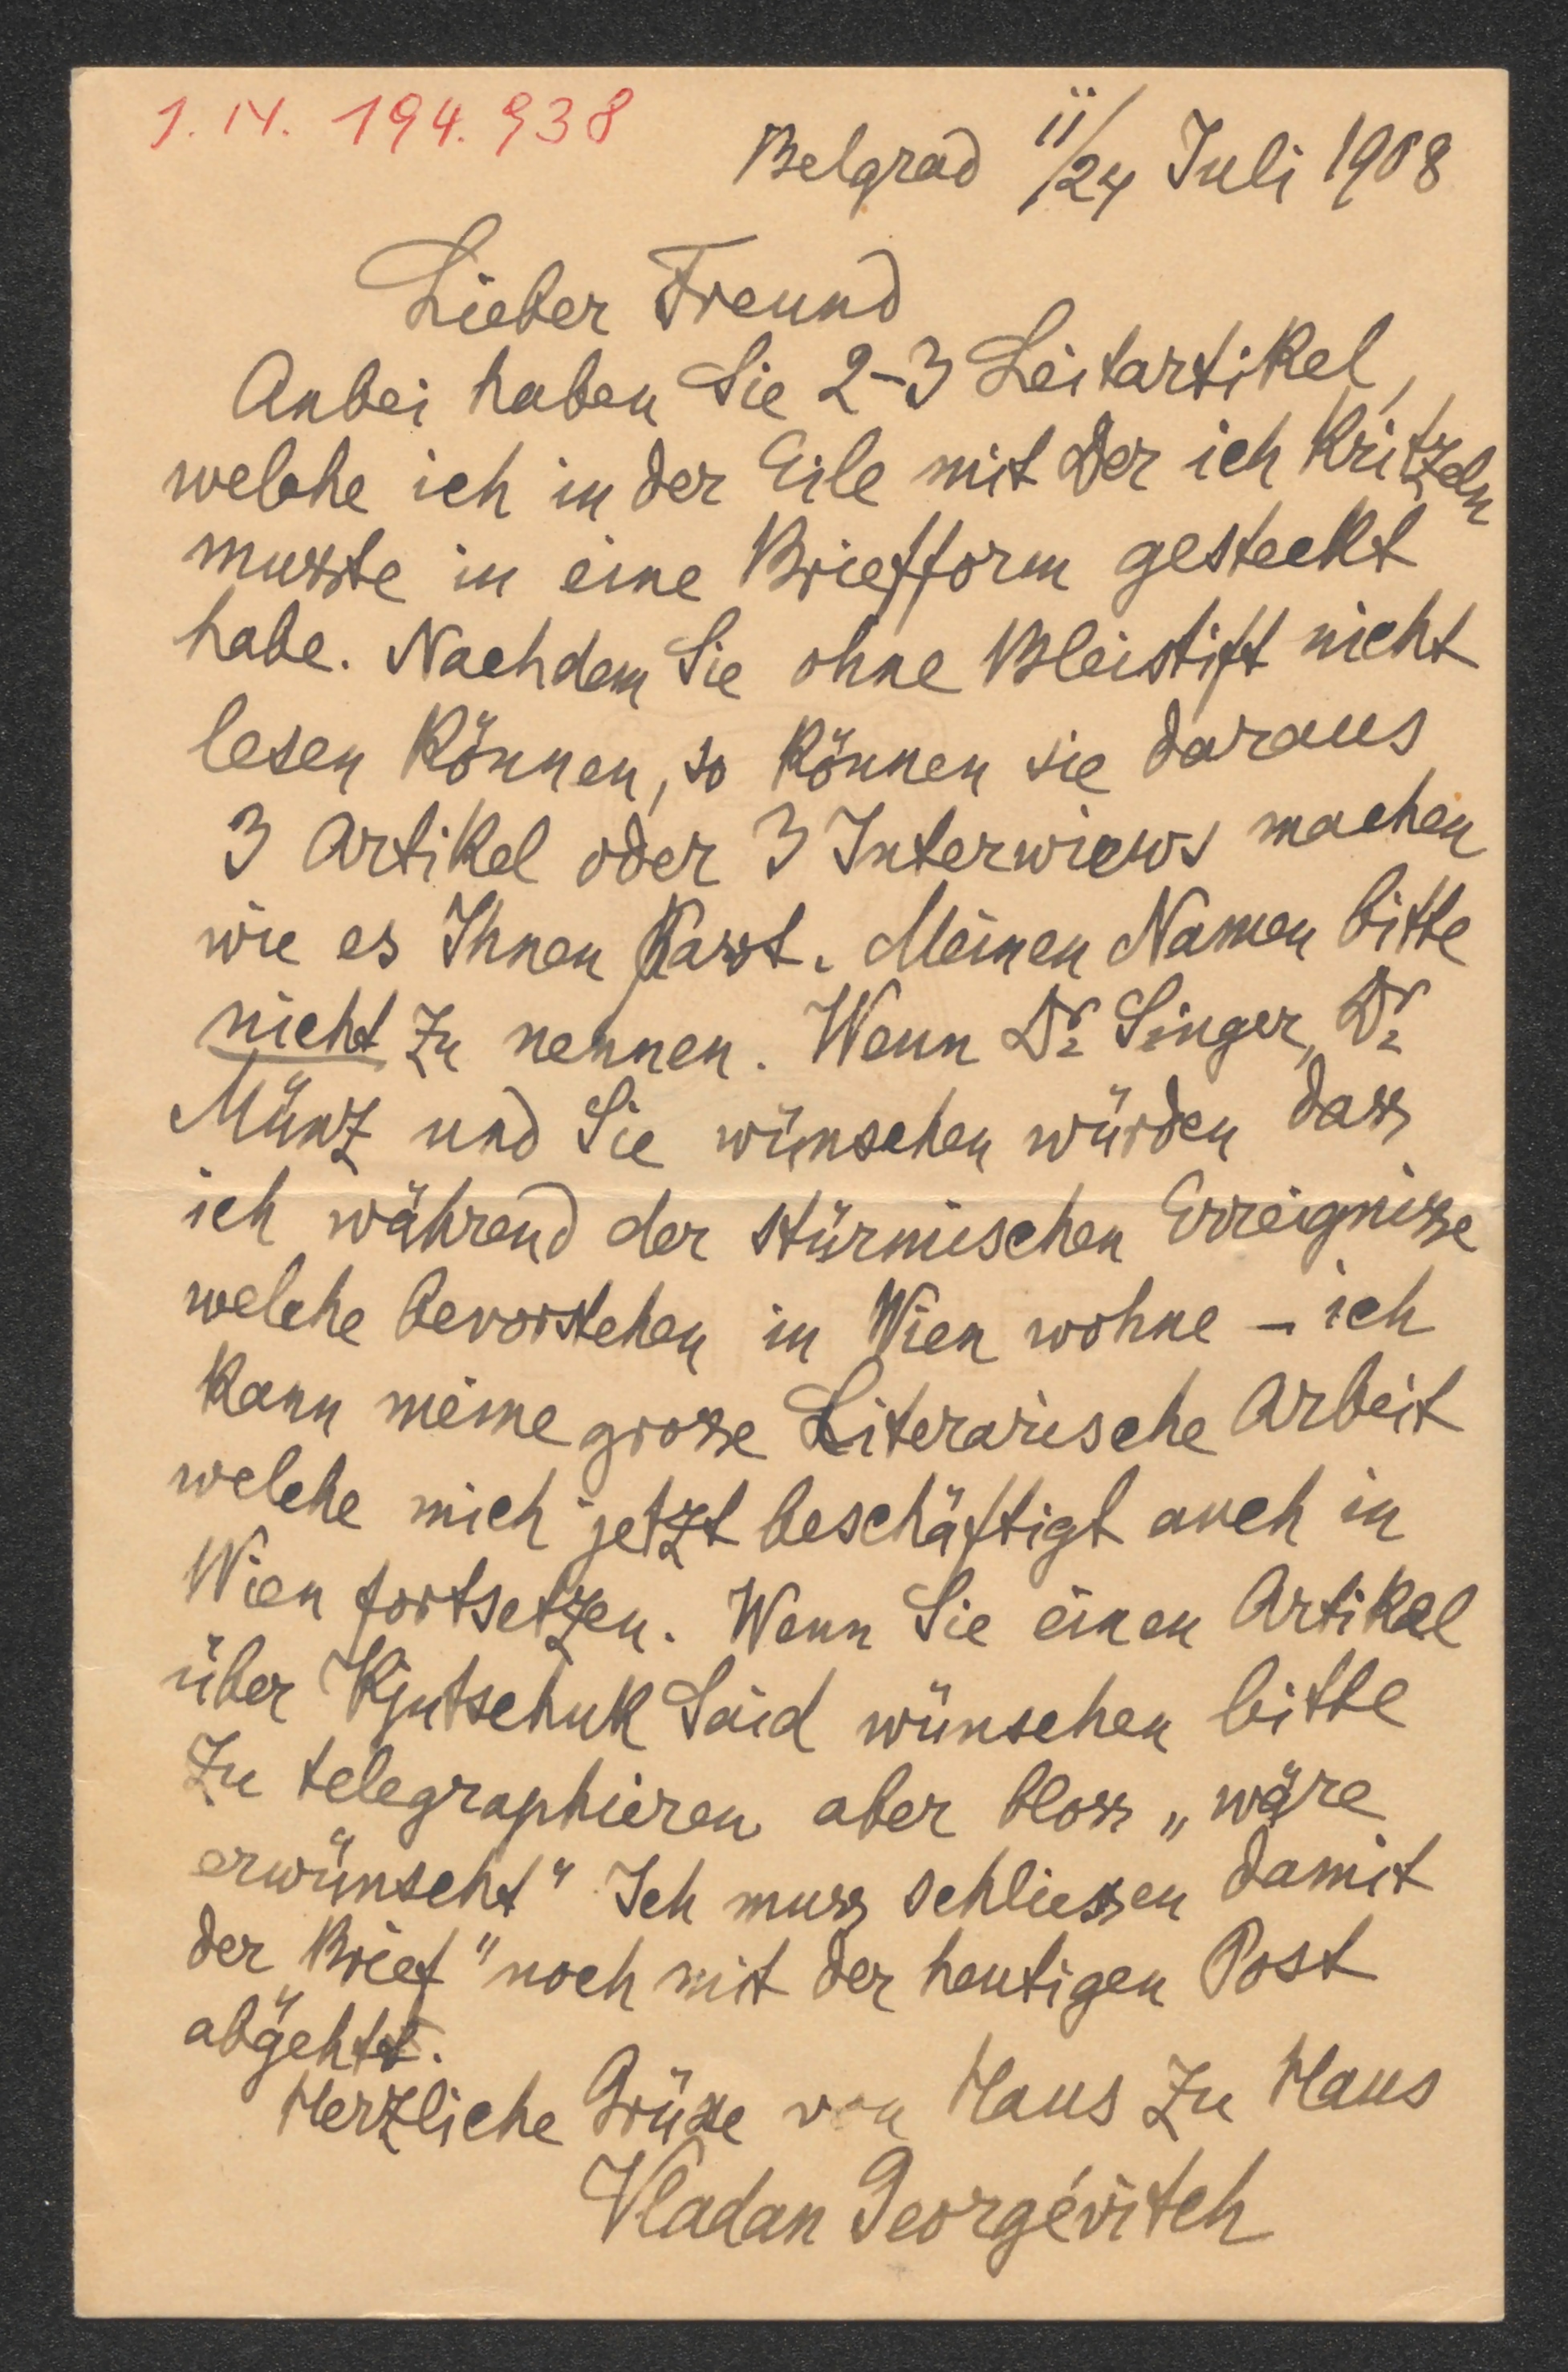 J.N. 194.938
Belgrad 11/24 Juli 1908
Lieber Freund
Anbei haben Sie 2-3 Leitartikel,
welche ich in der Eile mit der ich Kritzeln
musste in eine Briefform gesteckt
habe. Nachdem Sie ohne Bleistift nicht
lesen können, so können sie daraus
3 Artikel oder 3 Interwiews machen
wie es Ihnen passt. Meinen Namen bitte
nicht zu nennen. Wenn Dr. Singer, Dr.
Münz und Sie wünschen würden dass
ich während der stürmischen Erreignisse
welche bevorstehen in Wien wohne – ich
kann meine grosse Literarische Arbeit
welche mich jetzt beschäftigt auch in
Wien fortsetzen. Wenn Sie einen Artikel
über Kjutschuk Said wünschen bitte
zu telegraphieren aber bloss „wäre
erwünscht" Ich muss schliessen damit
der „Brief" noch mit der heutigen Post
abgeht.
Herzliche Grüsse von Haus zu Haus
Vladan Georgévitch